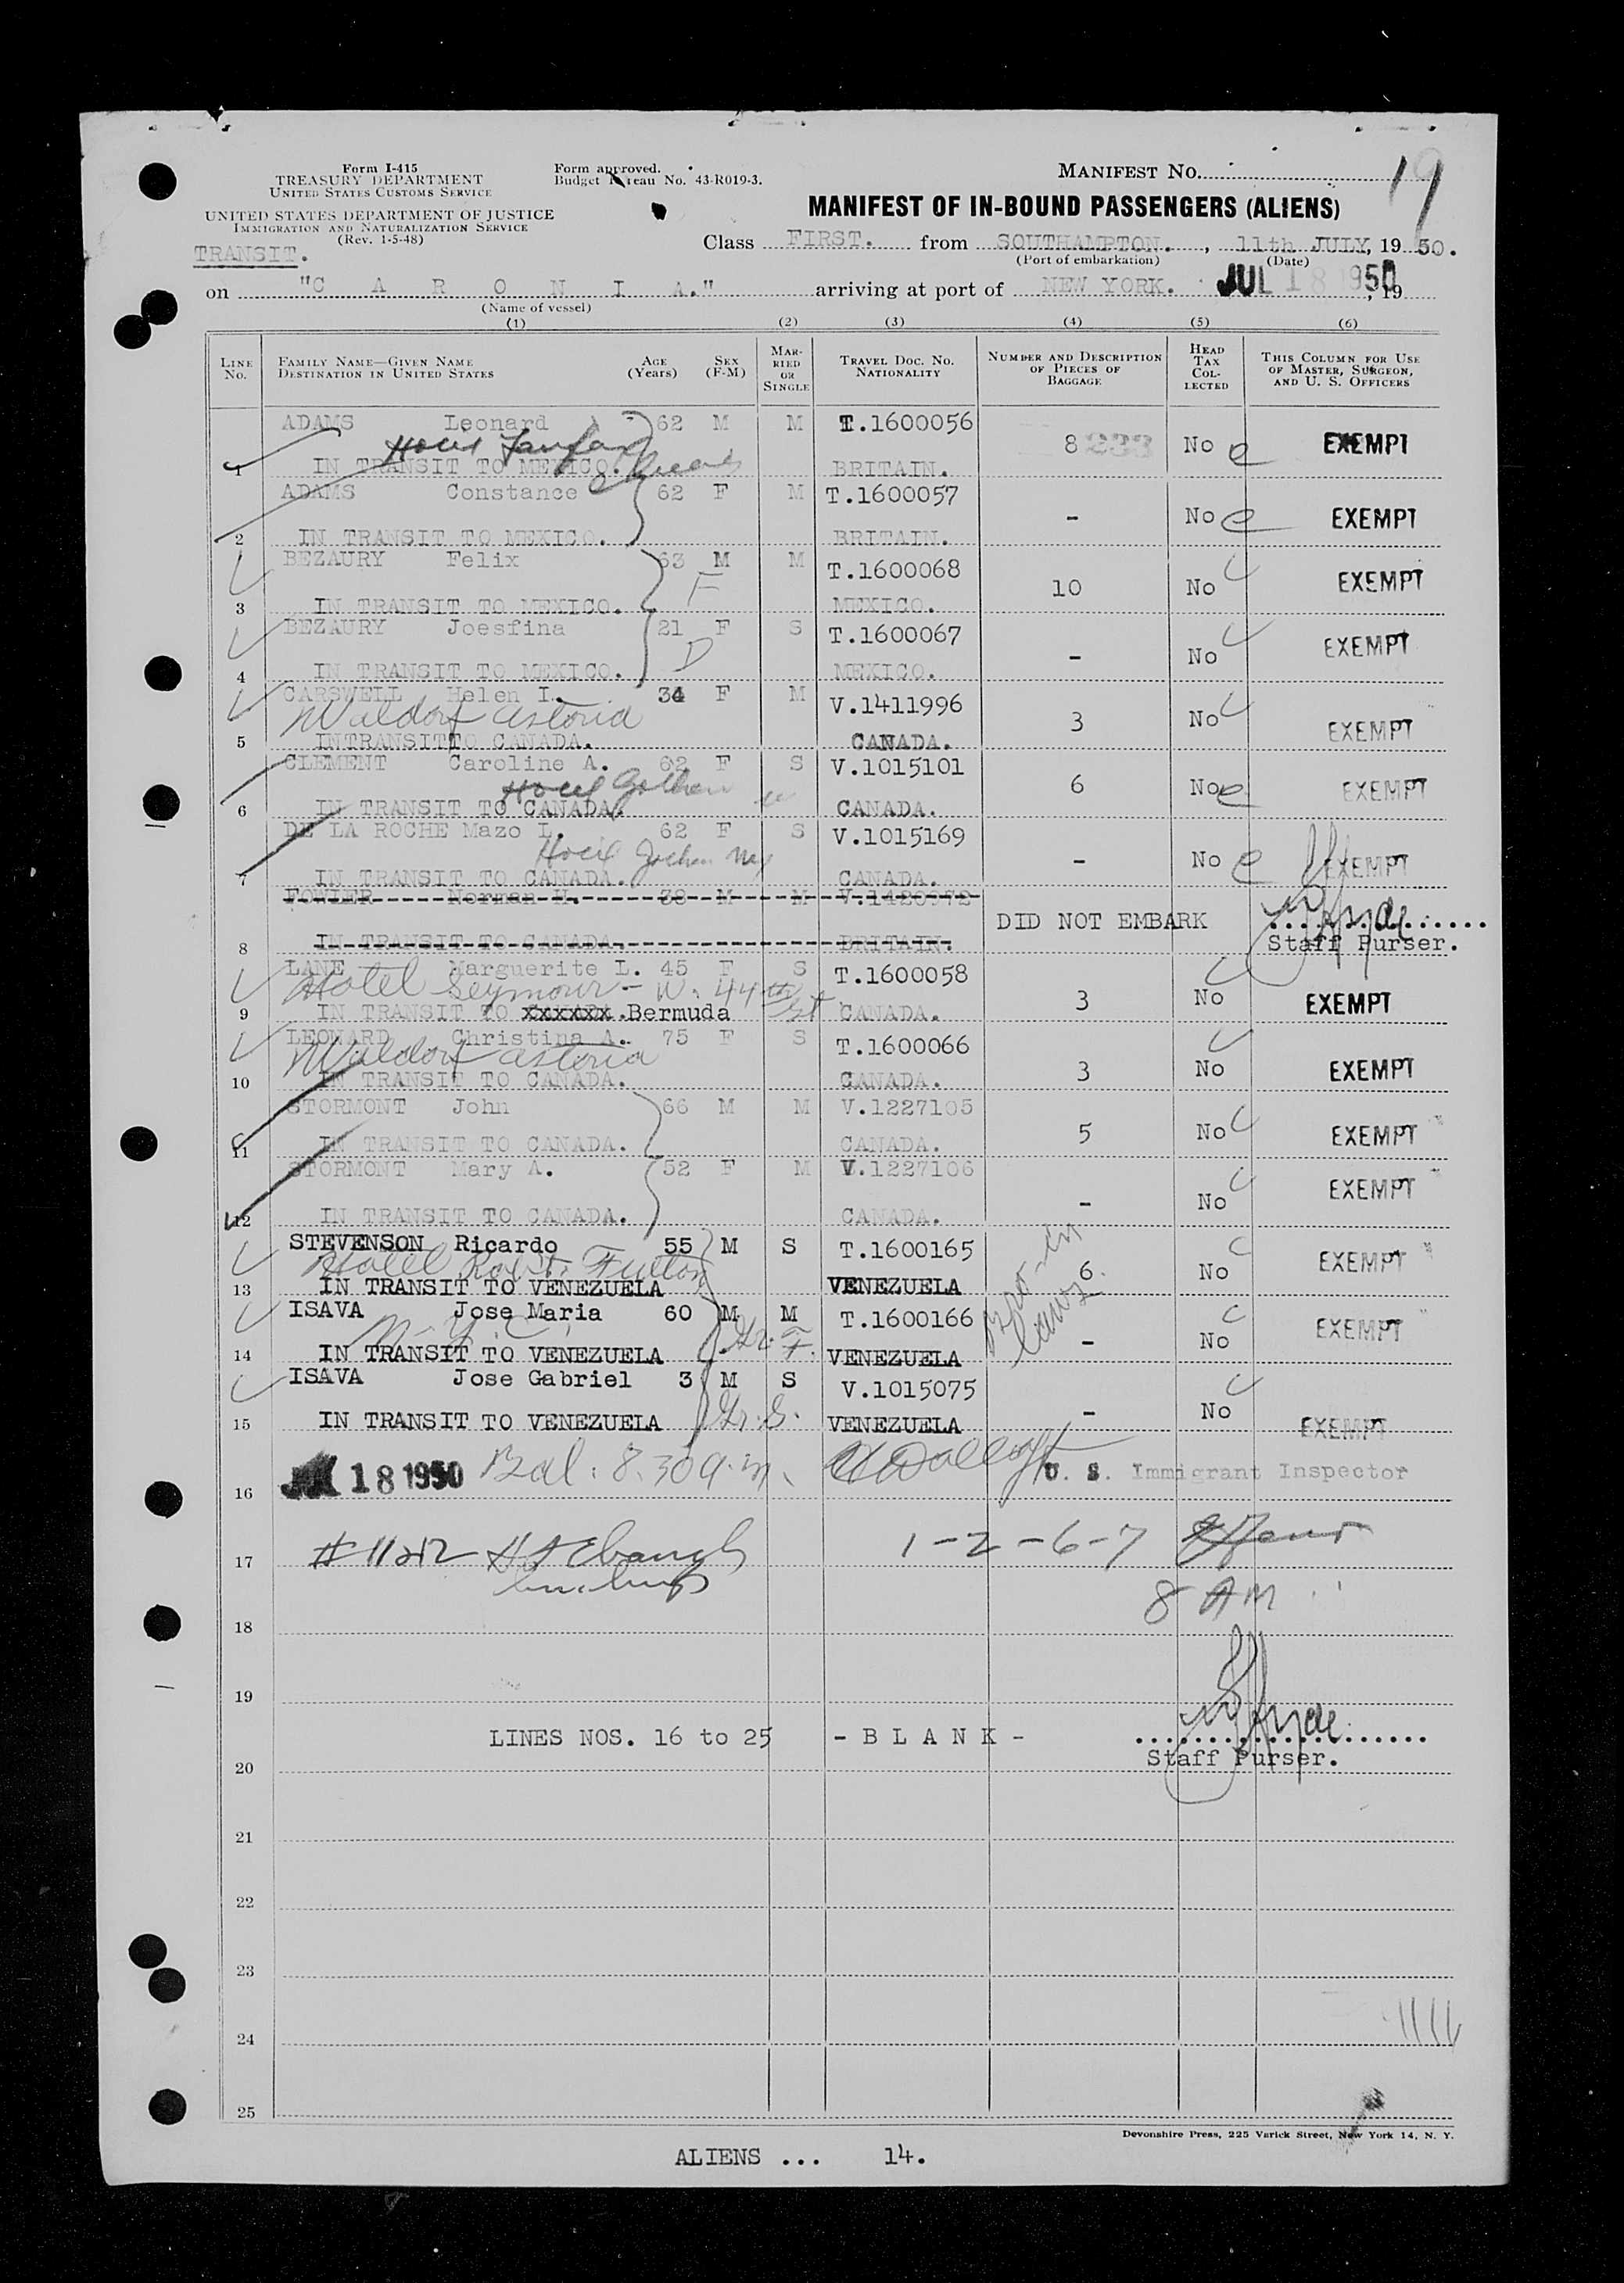 Form I-415
TREASURY DEPARTMENT
UNITED STATES CUSTOMS SERVICE
Form approved.
Budget Bureau No. 43-R019-3.
MANIFEST NO. 19
UNITED STATES DEPARTMENT OF JUSTICE
IMMIGRATION AND NATURALIZATION SERVICE
(Rev. 1-5-48)
TRANSIT.
MANIFEST OF IN-BOUND PASSENGERS (ALIENS)
Class FIRST. from SOUTHAMPTON. , 11th JULY, 19 50.
(Port of embarkation) (Date)
on "C A R O N I A." arriving at port of NEW YORK. JUL 18 1950 , 19
(Name of vessel)
(1) (2) (3) (4) (5) (6)
LINE NO. FAMILY NAME—GIVEN NAME DESTINATION IN UNITED STATES AGE (Years) SEX (F-M) MARRIED OR SINGLE TRAVEL DOC. NO. NATIONALITY NUMBER AND DESCRIPTION OF PIECES OF BAGGAGE HEAD TAX COLLECTED THIS COLUMN FOR USE OF MASTER, SURGEON, AND U. S. OFFICERS
ADAMS Leonard 62 M M T.1600056 8 233 No EXEMPT
Hotel
1 IN TRANSIT TO MEXICO. BRITAIN.
ADAMS Constance 62 F M T.1600057 - No EXEMPT
2 IN TRANSIT TO MEXICO. BRITAIN.
BEZAURY Felix 63 M M T.1600068 10 No EXEMPT
F
3 IN TRANSIT TO MEXICO. MEXICO.
BEZAURY Joesfina 21 F S T.1600067 - No EXEMPT
D
4 IN TRANSIT TO MEXICO. MEXICO.
CARSWELL Helen I. 34 F M V.1411996 3 No EXEMPT
Waldorf Astoria
5 INTRANSITTO CANADA. CANADA.
CLEMENT Caroline A. 62 F S V.1015101 6 No EXEMPT
Hotel Gotham
6 IN TRANSIT TO CANADA. CANADA.
DE LA ROCHE Mazo L. 62 F S V.1015169 - No EXEMPT
Hotel Gotham NY
7 IN TRANSIT TO CANADA. CANADA.
FOWLER Norman H. 38 M M V.1420972 DID NOT EMBARK
8 IN TRANSIT TO CANADA. BRITAIN. Staff Purser.
LANE Marguerite L. 45 F S T.1600058 3 No EXEMPT
Hotel Seymour - W. 44th St
9 IN TRANSIT TO xxxxxx .Bermuda CANADA.
LEONARD Christina A. 75 F S T.1600066 3 No EXEMPT
Waldorf Astoria
10 IN TRANSIT TO CANADA. CANADA.
STORMONT John 66 M M V.1227105 5 No EXEMPT
11 IN TRANSIT TO CANADA. CANADA.
STORMONT Mary A. 52 F M V.1227106 - No EXEMPT
12 IN TRANSIT TO CANADA. CANADA.
STEVENSON Ricardo 55 M S T.1600165 6 No EXEMPT
Hotel Robt. Fulton
13 IN TRANSIT TO VENEZUELA VENEZUELA
ISAVA Jose Maria 60 M M T.1600166 - No EXEMPT
N. Y. C. Gr. F.
14 IN TRANSIT TO VENEZUELA VENEZUELA
ISAVA Jose Gabriel 3 M S V.1015075 - No EXEMPT
Gr. S.
15 IN TRANSIT TO VENEZUELA VENEZUELA
16 JUL 18 1950 Bal. 8.30 a.m. U. S. Immigrant Inspector
17 1-2-6-7
8 AM
18
19
LINES NOS. 16 to 25 - B L A N K -
Staff Purser.
20
21
22
23
24
25
Devonshire Press, 225 Varick Street, New York 14, N. Y.
ALIENS ... 14.